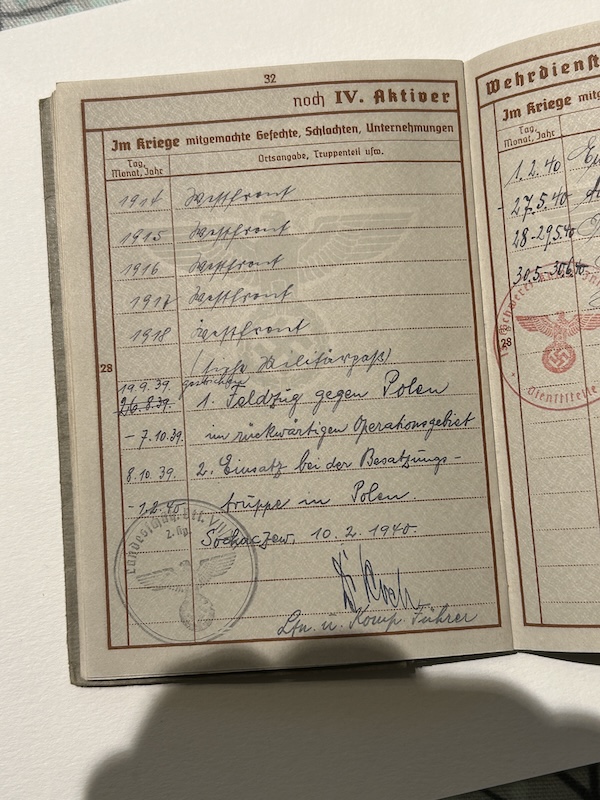 32
noch IV. Aktiver
Im Kriege mitgemachte Gefechte, Schlachten, Unternehmungen
Tag, Monat, Jahr
Ortsangabe, Truppenteil usw.
1914 Westfront
1915 Westfront
1916 Westfront
1917 Westfront
1918 Westfront
(siehe Militärpaß)
28
19.9.39. gestrichen
26.8.39. 1. Feldzug gegen Polen
- 7.10.39. im rückwärtigen Operationsgebiet
8.10.39. 2. Einsatz bei der Besatzungs-
- 1.2.40. truppe in Polen
Sochaczew, 10.2.1940.
Ltn. u. Komp. Führer
Landesschütz. Btl.
2. Kp.
Wehrdienst
Im Kriege mitg
Tag, Monat, Jahr
1.2.40
- 27.5.40
28.-29.5.40
30.5.-30.6.40
28
Dienststelle